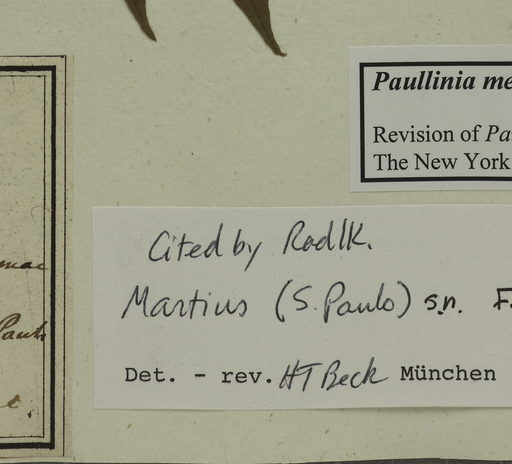 Paullinia me
Revision of Pa
The New York
Cited by Radlk.
Martius (S. Paulo) s.n. F.
Det. - rev. HT Beck München